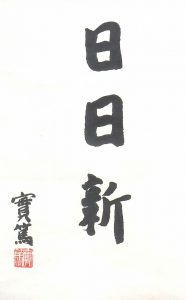 日日新
寶篤